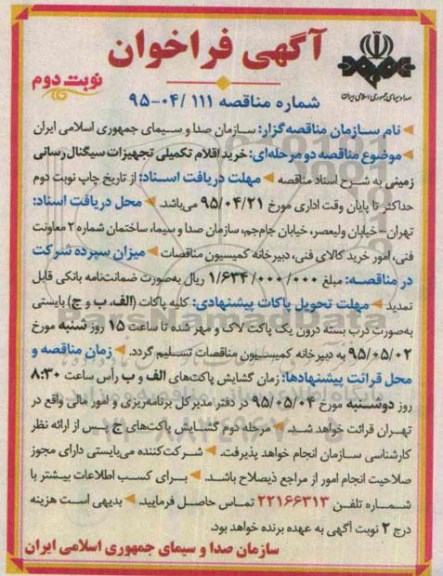 آگهی فراخوان
صدا و سیمای جمهوری اسلامی ایران
نوبت دوم
شماره مناقصه ۱۱۱ /۰۴-۹۵
نام سازمان مناقصه‌گزار: سازمان صدا و سیمای جمهوری اسلامی ایران
موضوع مناقصه دو مرحله‌ای: خرید اقلام تکمیلی تجهیزات سیگنال رسانی
زمینی به شرح اسناد مناقصه مهلت دریافت اسناد: از تاریخ چاپ نوبت دوم
حداکثر تا پایان وقت اداری مورخ ۹۵/۰۴/۲۱ می‌باشد. محل دریافت اسناد:
تهران- خیابان ولیعصر، خیابان جام‌جم، سازمان صدا و سیما، ساختمان شماره ۲ معاونت
فنی، امور خرید کالای فنی، دبیرخانه کمیسیون مناقصات میزان سپرده شرکت
در مناقصه: مبلغ ۱/۶۳۴/۰۰۰/۰۰۰ ریال به‌صورت ضمانت‌نامه بانکی قابل
تمدید مهلت تحویل پاکات پیشنهادی: کلیه پاکات (الف، ب و ج) بایستی
به‌صورت درب بسته درون یک پاکت لاک و مهر شده تا ساعت ۱۵ روز شنبه مورخ
۹۵/۰۵/۰۲ به دبیرخانه کمیسیون مناقصات تسلیم گردد. زمان مناقصه و
محل قرائت پیشنهادها: زمان گشایش پاکت‌های الف و ب رأس ساعت ۸:۳۰
روز دوشنبه مورخ ۹۵/۰۵/۰۴ در دفتر مدیرکل برنامه‌ریزی و امور مالی واقع در
تهران قرائت خواهد شد. مرحله دوم گشایش پاکت‌های ج پس از ارائه نظر
کارشناسی سازمان انجام خواهد پذیرفت. شرکت‌کننده می‌بایستی دارای مجوز
صلاحیت انجام امور از مراجع ذیصلاح باشد. برای کسب اطلاعات بیشتر با
شماره تلفن ۲۲۱۶۶۳۱۳ تماس حاصل فرمایید. بدیهی است هزینه
درج ۲ نوبت آگهی به عهده برنده خواهد بود.
سازمان صدا و سیمای جمهوری اسلامی ایران
ParsNamadData